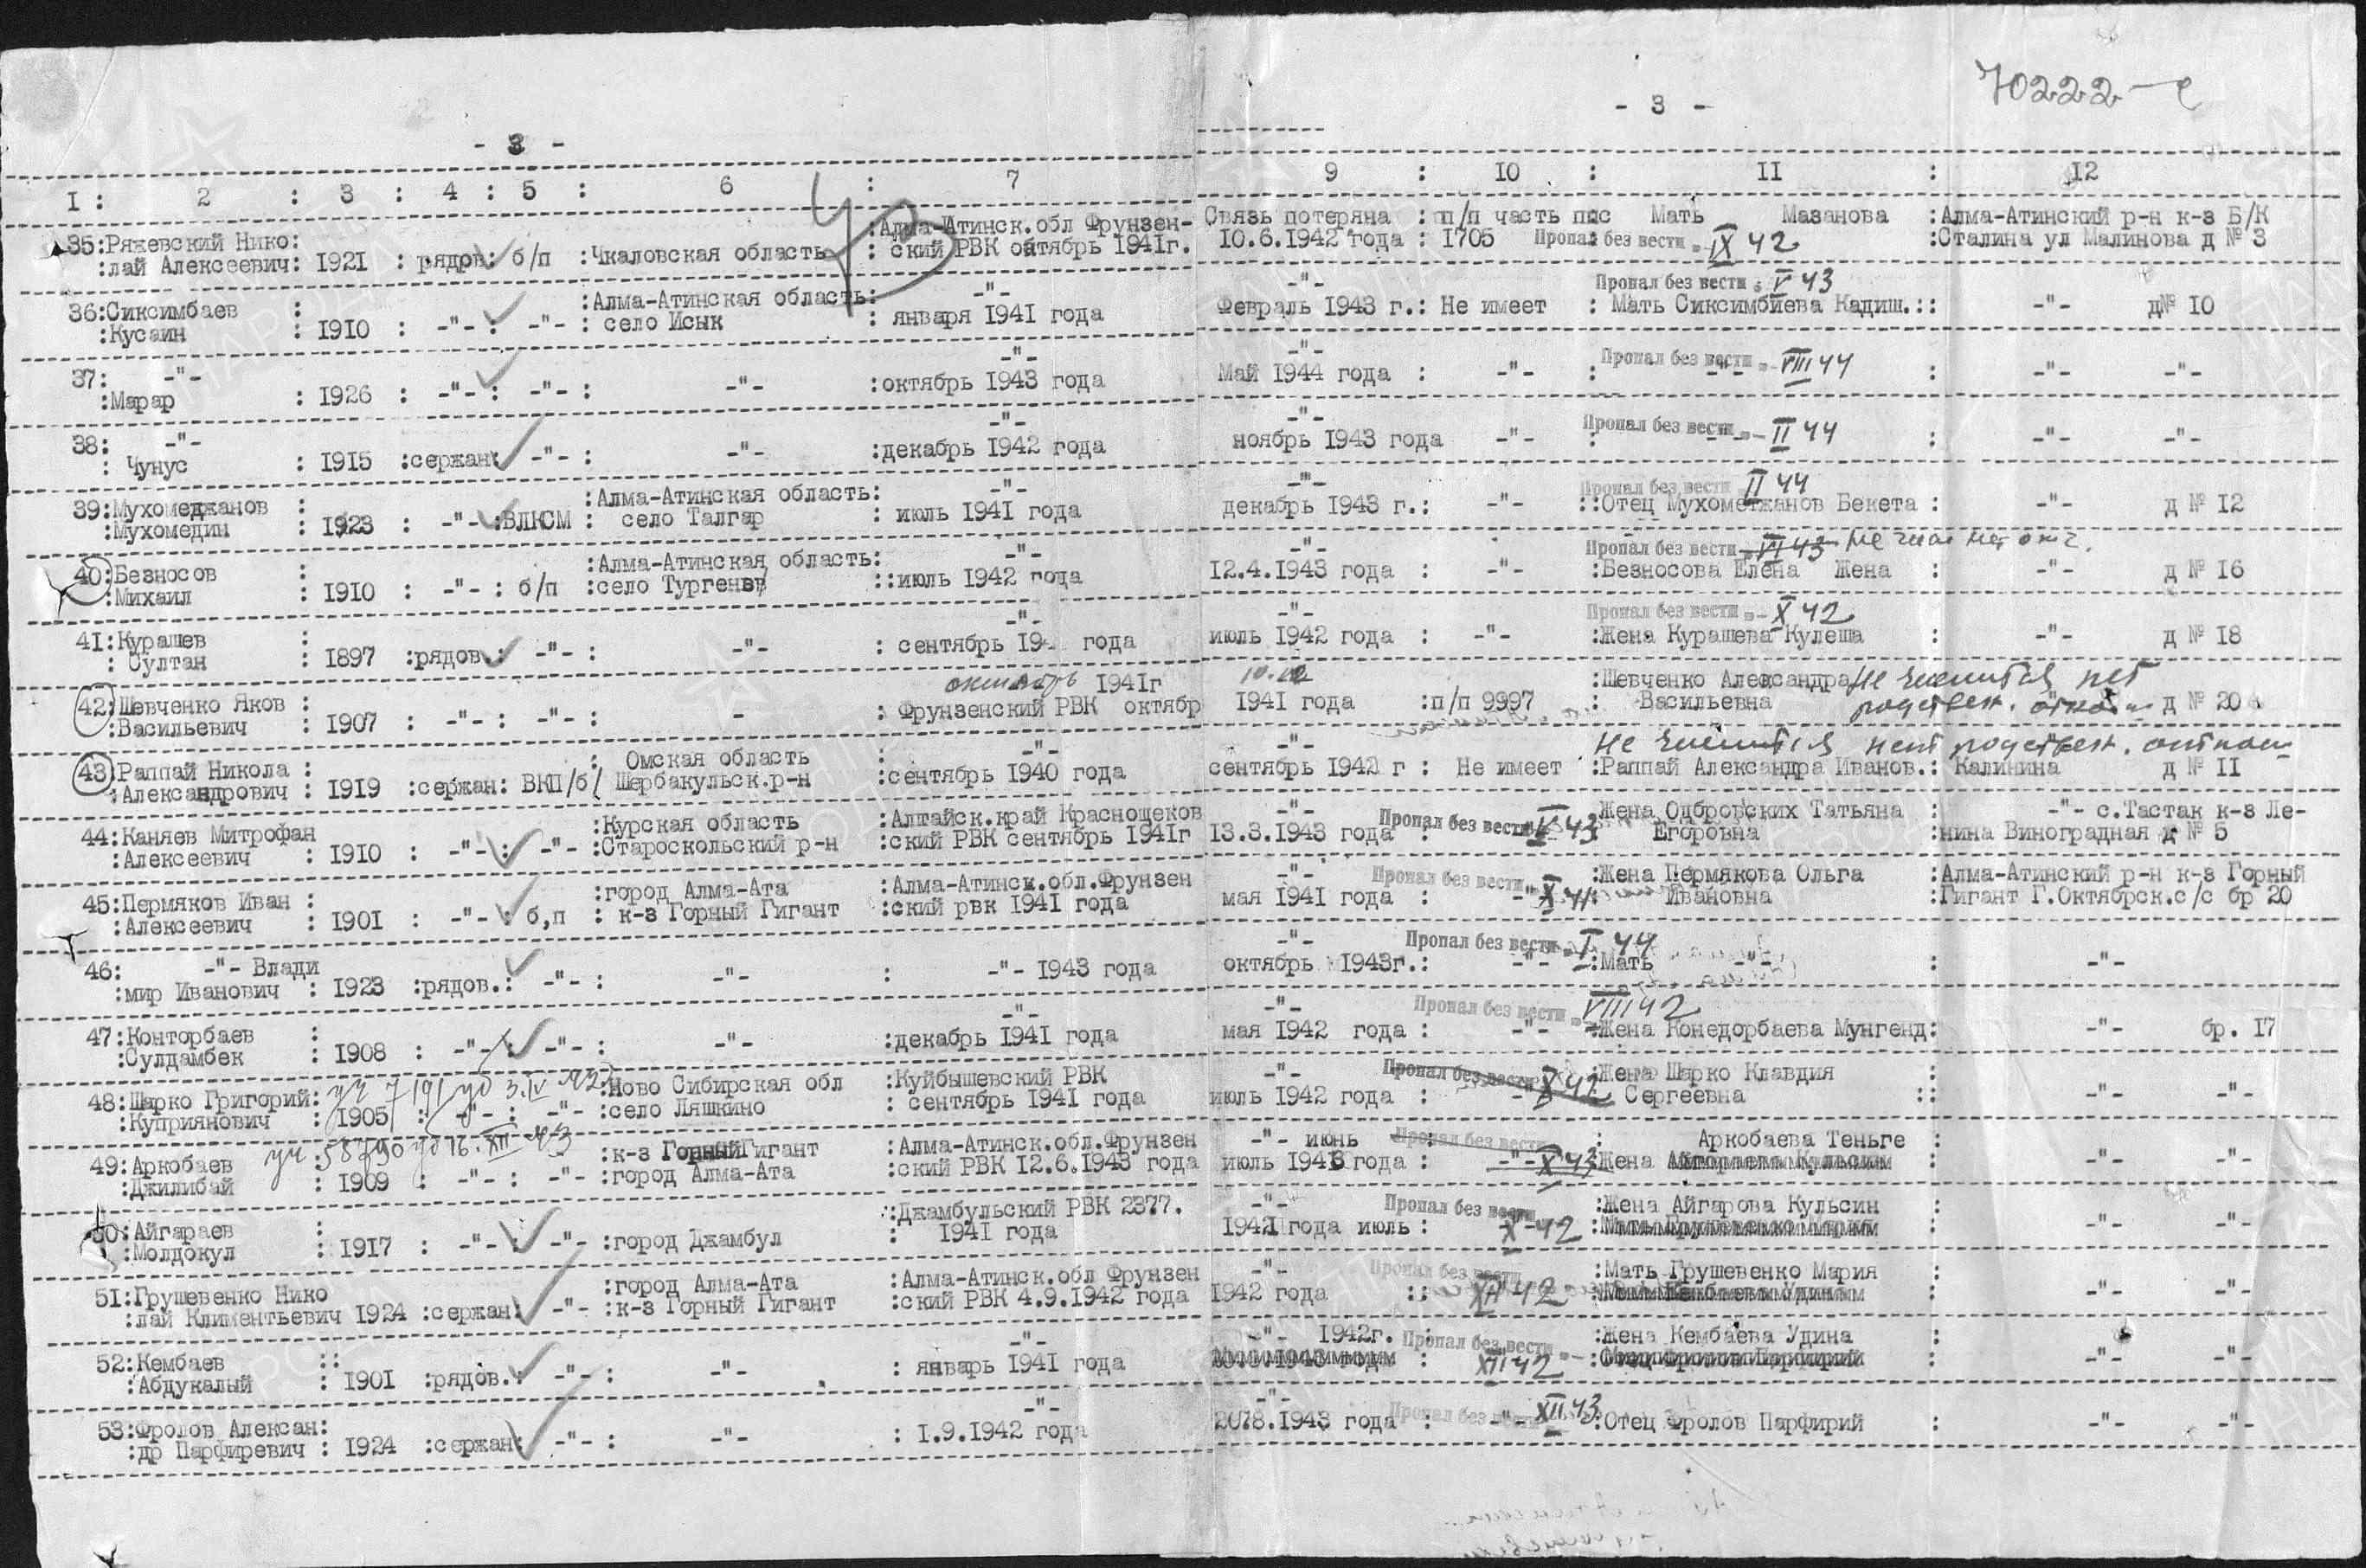 70222-с
- 3 -
- 3 -
1 : 2 : 3 : 4 : 5 : 6 : 7
9 : 10 : 11 : 12
35:Ряжевский Нико: :Алма-Атинск.обл Фрунзен- Связь потеряна : п/п часть пюс Мать Мазанова :Алма-Атинский р-н к-з Б/К
:лай Алексеевич: 1921 : рядов: б/п :Чкаловская область : ский РВК октябрь 1941г. 10.6.1942 года : 1705 Пропал без вести - IX 42 :Сталина ул Малинова д № 3
36:Сиксимбаев : :Алма-Атинская область: -"- -"- Пропал без вести - V 43
:Кусаин : 1910 : -"- : -"- : село Исык : января 1941 года Февраль 1943 г.: Не имеет : Мать Сиксимбиева Кадиш.:: -"- д№ 10
37: -"- -"- -"- Пропал без вести - VIII 44
:Марар : 1926 : -"- : -"- : -"- :октябрь 1943 года Май 1944 года : -"- : -"- : -"- -"-
38: -"- -"- -"- Пропал без вести - II 44
: Чунус : 1915 :сержан: -"- : -"- :декабрь 1942 года ноябрь 1943 года -"- : -"- : -"- -"-
39:Мухомеджанов : :Алма-Атинская область: -"- -"- Пропал без вести II 44
:Мухомедин : 1923 : -"- :ВЛКСМ : село Талгар : июль 1941 года декабрь 1943 г.: -"- ::Отец Мухометжанов Бекета : -"- д № 12
40:Безносов : :Алма-Атинская область: -"- -"- Пропал без вести - VI 43
:Михаил : 1910 : -"- : б/п :село Тургенев ::июль 1942 года 12.4.1943 года : -"- :Безносова Елена Жена : -"- д № 16
41:Курашев : -"- -"- Пропал без вести - X 42
: Султан : 1897 :рядов.: -"- : -"- : сентябрь 19 года июль 1942 года : -"- :Жена Курашева Кулеша : -"- д № 18
42:Шевченко Яков : октябрь 1941г :Шевченко Александра Не числится нет
:Васильевич : 1907 : -"- : -"- : - : Фрунзенский РВК октябр 1941 года :п/п 9997 : Васильевна родствен. отнош д № 20
43:Раппай Никола : : Омская область : -"- -"- Не числится нет родствен. отнош
:Александрович : 1919 :сержан: ВКП/б/ Шербакульск.р-н :сентябрь 1940 года сентябрь 1942 г : Не имеет :Раппай Александра Иванов.: Калинина д № 11
44:Каняев Митрофан :Курская область :Алтайск.край Краснощеков -"- Пропал без вести V 43 :Жена Одбровских Татьяна : -"- с.Тастак к-з Ле-
:Алексеевич : 1910 : -"- : -"- :Староскольский р-н :ский РВК сентябрь 1941г 13.3.1943 года : Егоровна :нина Виноградная д № 5
45:Пермяков Иван : :город Алма-Ата :Алма-Атинск.обл.Фрунзен -"- Пропал без вести :Жена Пермякова Ольга :Алма-Атинский р-н к-з Горный
:Алексеевич : 1901 : -"- : б,п : к-з Горный Гигант :ский рвк 1941 года мая 1941 года : -"- X 41: Ивановна :Гигант Г.Октябрск.с/с бр 20
46: -"- Влади -"- Пропал без вести - I 44
:мир Иванович : 1923 :рядов.: -"- : -"- : -"- 1943 года октябрь 1943г.: -"- :Мать -"- : -"-
47:Конторбаев : -"- -"- Пропал без вести - VIII 42
:Сулдамбек : 1908 : -"- : -"- : -"- :декабрь 1941 года мая 1942 года : -"- :Жена Конедорбаева Мунгенд: -"- бр. 17
48:Шарко Григорий: уч 7191 уб 3.IV 42 :Ново Сибирская обл :Куйбышевский РВК -"- Пропал без вести X 42 :Жена Шарко Клавдия :
:Куприянович : 1905 : -"- : -"- :село Ляшкино : сентябрь 1941 года июль 1942 года : -"- Сергеевна :: -"- -"-
49:Аркобаев уч 58790 уб 16.XII 43 :к-з Горный Гигант :Алма-Атинск.обл.Фрунзен -"- июнь Пропал без вести : Аркобаева Теньге :
:Джилибай : 1909 : -"- : -"- :город Алма-Ата :ский РВК 12.6.1943 года июль 1943 года : -"- X 43 :Жена : -"- -"-
50:Айгараев : :Джамбульский РВК 2377. -"- Пропал без вести :Жена Айгарова Кульсин :
:Молдокул : 1917 : -"- : -"- :город Джамбул : 1941 года 1941 года июль : X-42 : -"- -"-
51:Грушевенко Нико :город Алма-Ата :Алма-Атинск.обл Фрунзен -"- Пропал без вести :Мать Грушевенко Мария :
:лай Климентьевич 1924 :сержан: -"- :к-з Горный Гигант :ский РВК 4.9.1942 года 1942 года :: XII 42 : -"- -"-
52:Кембаев :: -"- -"- 1942г. : Пропал без вести - :Жена Кембаева Удина :
:Абдукалый : 1901 :рядов.: -"- : -"- : январь 1941 года : XII 42 : -"- -"-
53:Фролов Алексан: -"- -"- Пропал без вести XII 43
:др Парфиревич : 1924 :сержан: -"- : -"- : 1.9.1942 года 2078.1943 года : -"- :Отец Фролов Парфирий : -"- -"-